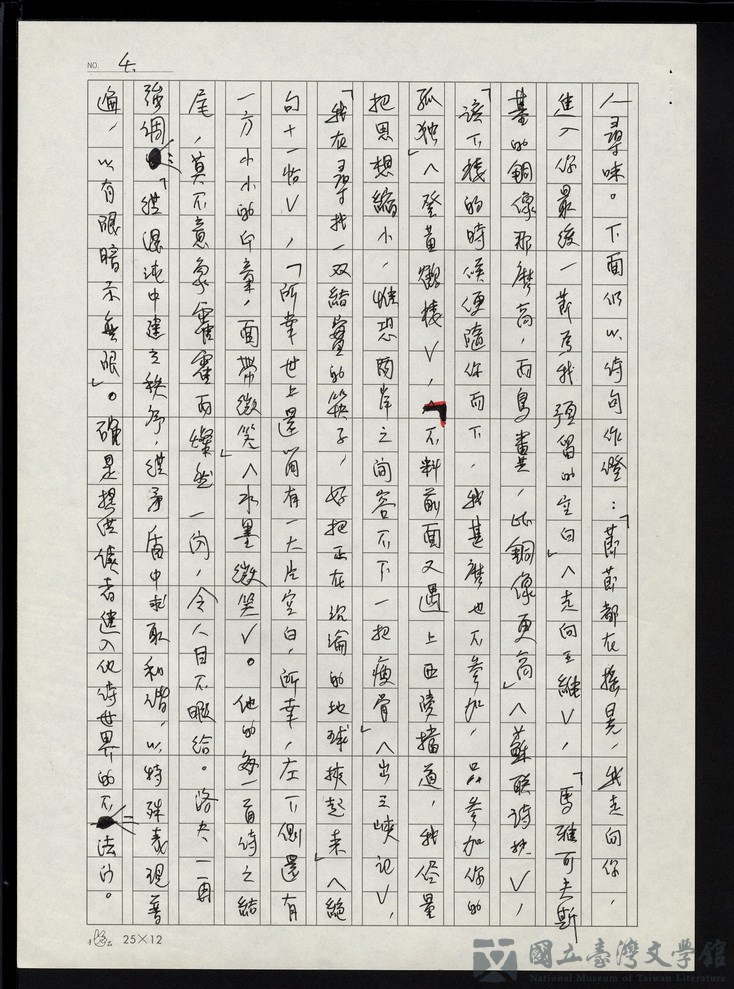 NO. 4.
人尋味。下面仍以詩句作證：「節節都在搖晃，我走向你，
進入你最後一節為我預留的空白」〈走向王維〉，「馬雅可夫斯
基的銅像那麼高，而鳥糞，比銅像更高」〈蘇聯詩抄〉，
「該下樓的時候便隨你而下，我甚麼也不參加，只參加你的
孤独」〈登黃鶴樓〉，「不料前面又遇上西陵擋道，我儘量
把思想縮小，惟恐兩岸之間容不下一把瘦骨」〈出三峽記〉，
「我在尋找一双結實的筷子，好把正在沉淪的地球挾起來」〈絕
句十一帖〉，「所幸世上還留有一大片空白，所幸，左下側還有
一方小小的印章，面帶微笑」〈水墨微笑〉。他的每一首詩之結
尾，莫不意象霍霍而燦然一閃，令人目不暇給。洛夫一再
強調「從混沌中建立秩序，從矛盾中求取和諧，以特殊表現普
遍，以有限暗示無限」。確是提供讀者進入他詩世界的不法門。
25×12
國立臺灣文學館
National Museum of Taiwan Literature